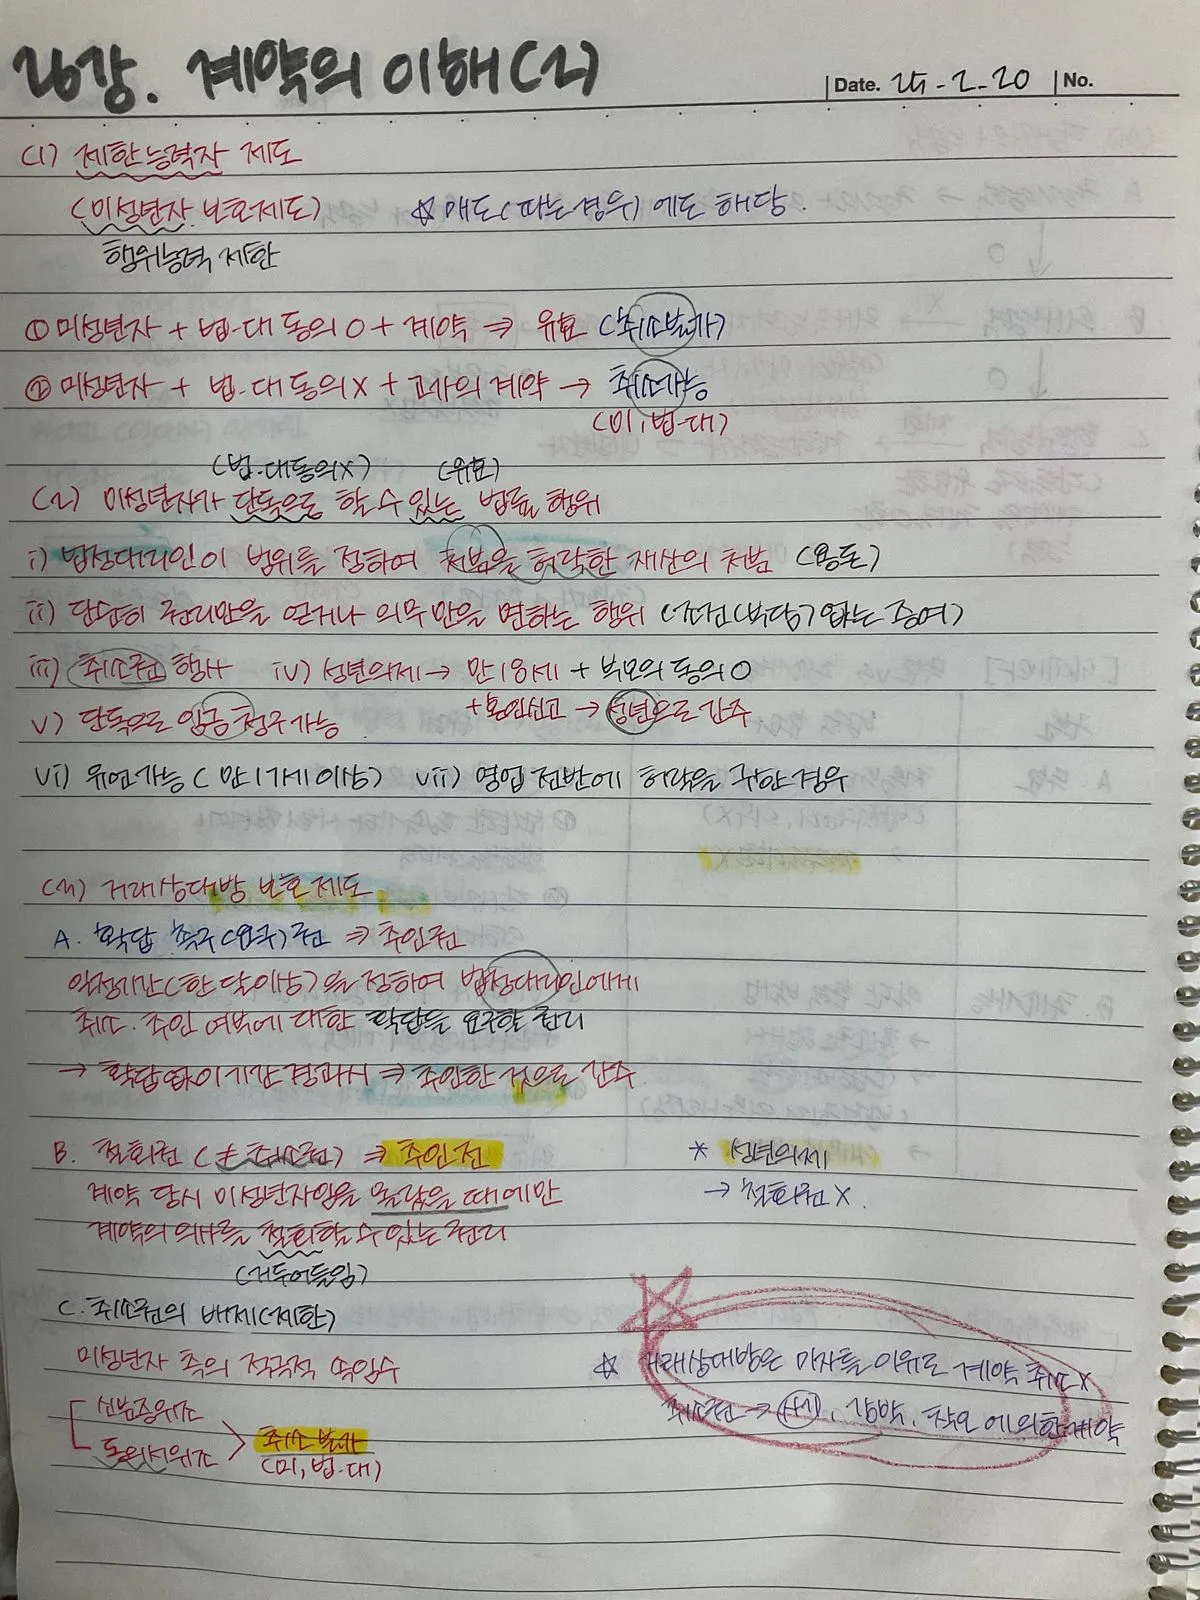 26강. 계약의 이해(2)
Date. 25-2-20 No.
(1) 제한능력자 제도
(미성년자 보호제도) ☆ 매도(파는 경우)에도 해당.
행위능력 제한
① 미성년자 + 법.대 동의 O + 계약 ⇒ 유효 (취소불가)
② 미성년자 + 법.대 동의 X + 고가의 계약 → 취소가능
(미, 법.대)
(법.대 동의X) (유효)
(2) 미성년자가 단독으로 할 수 있는 법률 행위
i) 법정대리인이 범위를 정하여 처분을 허락한 재산의 처분 (용돈)
ii) 단순히 권리만을 얻거나 의무만을 면하는 행위 (조건(부담)없는 증여)
iii) 취소권 행사 iv) 성년의제 → 만 18세 + 부모의 동의 O
+ 혼인신고 → 성년으로 간주
v) 단독으로 임금 청구 가능
vi) 유언가능 (만 17세 이상) vii) 영업 전반에 허락을 구한 경우
(3) 거래상대방 보호 제도
A. 확답 촉구(요구)권 ⇒ 추인권
일정기간(한 달 이상)을 정하여 법정대리인에게
취소·추인 여부에 대한 확답을 요구할 권리
→ 확답 없이 기간 경과시 ⇒ 추인한 것으로 간주
B. 철회권 (≠ 취소권) ⇒ 추인전 * 성년의제
계약 당시 미성년자임을 몰랐을 때에만 → 철회권 X.
계약의 의사를 철회할 수 있는 권리
(거두어들임)
C. 취소권의 배제(제한)
미성년자 측의 적극적 속임수 ☆ 거래상대방은 미자를 이유로 계약 취소 X
신분증위조 취소권 → 사기, 강박, 착오에 의한 계약
동의서위조 > 취소불가
(미, 법.대)